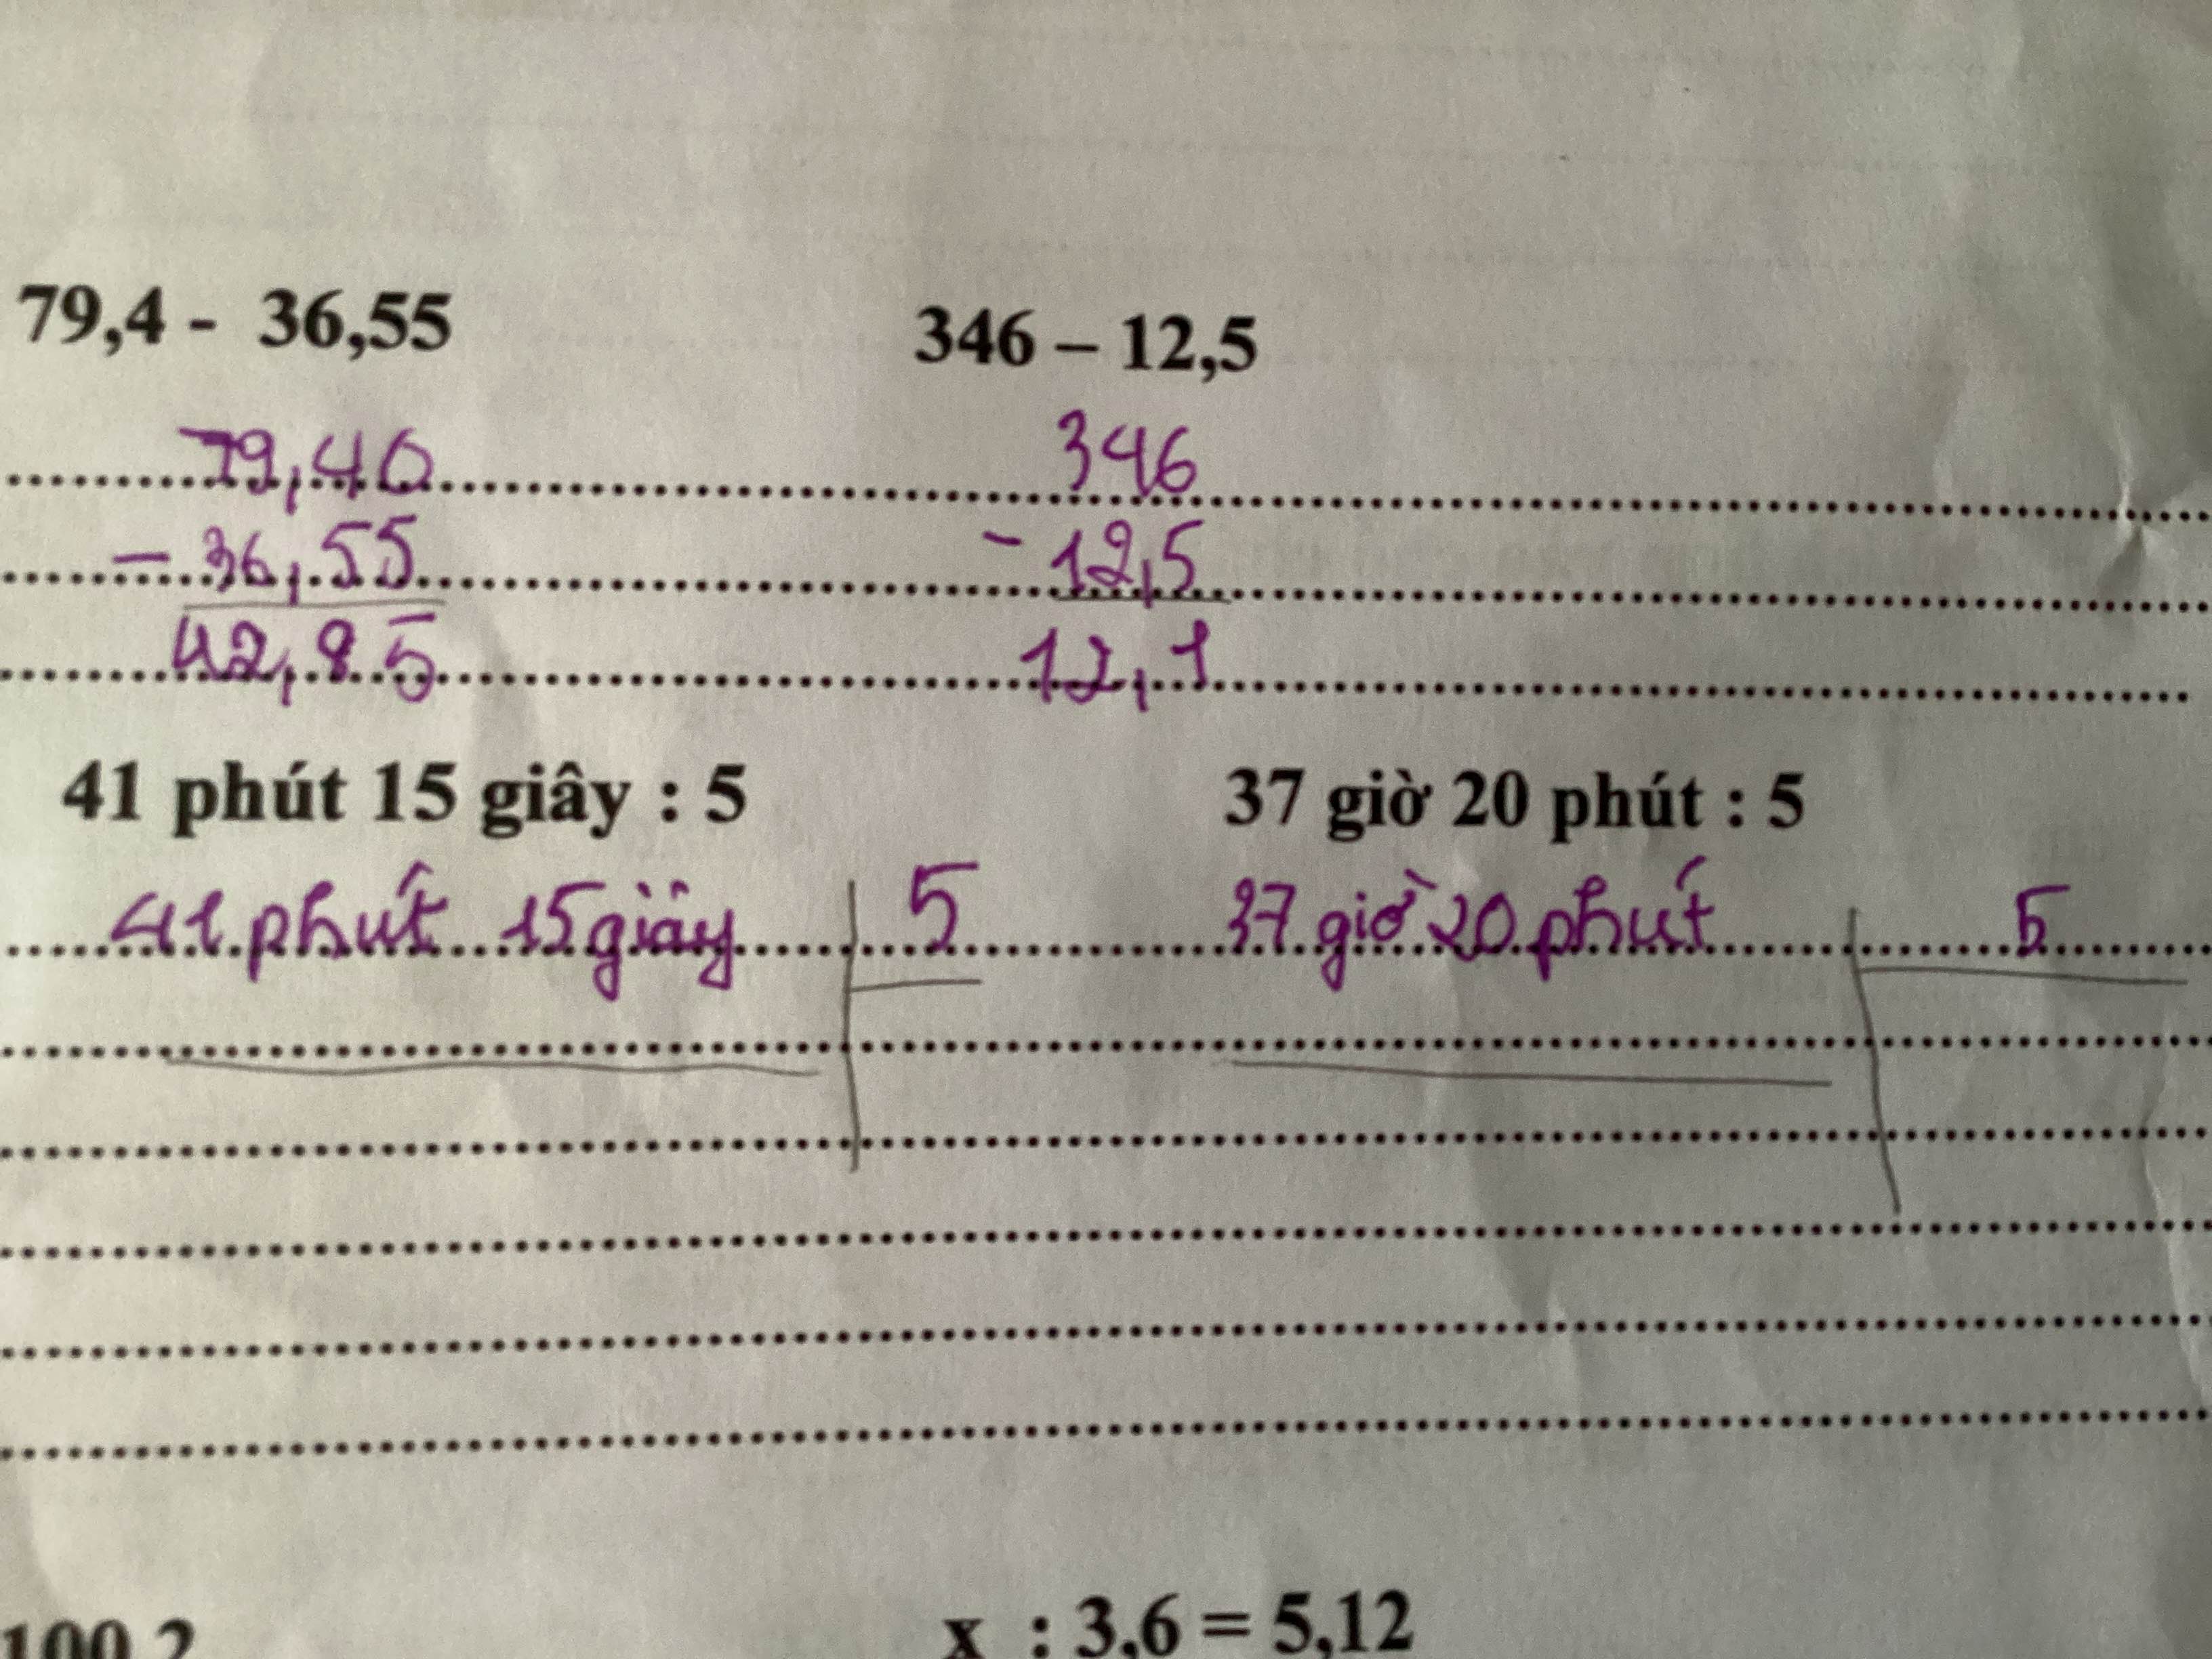 79,4 - 36,55 346 – 12,5
79,40 346
- 36,55 - 12,5
42,85 12,1
41 phút 15 giây : 5 37 giờ 20 phút : 5
41 phút 15 giây 5 37 giờ 20 phút 5
x : 3,6 = 5,12